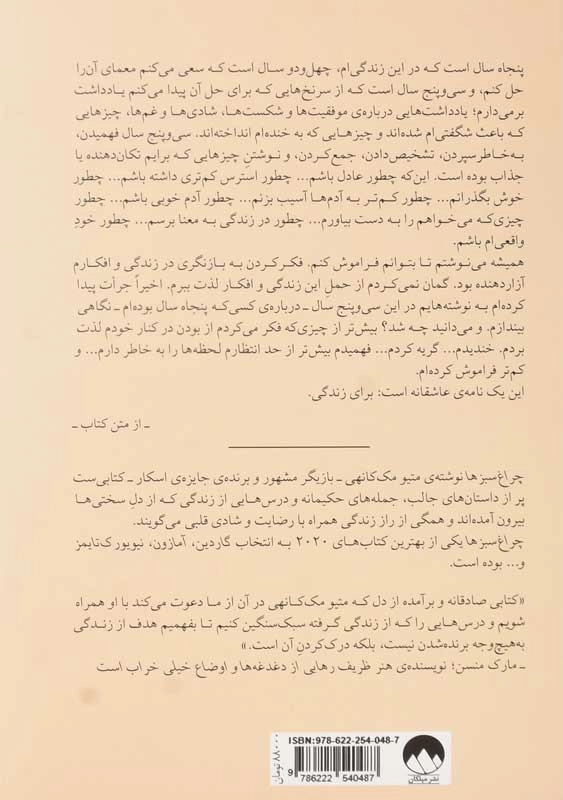 پنجاه سال است که در این زندگی‌ام، چهل‌ودو سال است که سعی می‌کنم معمای آن‌را
حل کنم، و سی‌وپنج سال است که از سرنخ‌هایی که برای حل آن پیدا می‌کنم یادداشت
برمی‌دارم؛ یادداشت‌هایی درباره‌ی موفقیت‌ها و شکست‌ها، شادی‌ها و غم‌ها، چیزهایی
که باعث شگفتی‌ام شده‌اند و چیزهایی که به خنده‌ام انداخته‌اند. سی‌وپنج سال فهمیدن،
به‌خاطرسپردن، تشخیص‌دادن، جمع‌کردن، و نوشتنِ چیزهایی که برایم تکان‌دهنده یا
جذاب بوده است. این‌که چطور عادل باشم... چطور استرس کم‌تری داشته باشم... چطور
خوش بگذرانم... چطور کم‌تر به آدم‌ها آسیب بزنم... چطور آدم خوبی باشم... چطور
چیزی‌که می‌خواهم را به دست بیاورم... چطور در زندگی به معنا برسم... چطور خودِ
واقعی‌ام باشم.
همیشه می‌نوشتم تا بتوانم فراموش کنم. فکرکردن به بازنگری در زندگی و افکارم
آزاردهنده بود. گمان نمی‌کردم از حملِ این زندگی و افکار لذت ببرم. اخیراً جرأت پیدا
کرده‌ام به نوشته‌هایم در این سی‌وپنج سال ـ درباره‌ی کسی‌که پنجاه سال بوده‌ام ـ نگاهی
بیندازم. و می‌دانید چه شد؟ بیش‌تر از چیزی‌که فکر می‌کردم از بودن در کنار خودم لذت
بردم. خندیدم... گریه کردم... فهمیدم بیش‌تر از حد انتظارم لحظه‌ها را به خاطر دارم... و
کم‌تر فراموش کرده‌ام.
این یک نامه‌ی عاشقانه است؛ برای زندگی.
ـ از متن کتاب ـ
چراغ‌سبزها نوشته‌ی متیو مک‌کانهی ـ بازیگر مشهور و برنده‌ی جایزه‌ی اسکار ـ کتابی‌ست
پر از داستان‌های جالب، جمله‌های حکیمانه و درس‌هایی از زندگی که از دلِ سختی‌ها
بیرون آمده‌اند و همگی از راز زندگی همراه با رضایت و شادی قلبی می‌گویند.
چراغ‌سبزها یکی از بهترین کتاب‌های ۲۰۲۰ به انتخاب گاردین، آمازون، نیویورک‌تایمز
و... بوده است.
«کتابی صادقانه و برآمده از دل که متیو مک‌کانهی در آن از ما دعوت می‌کند با او همراه
شویم و درس‌هایی را که از زندگی گرفته سبک‌سنگین کنیم تا بفهمیم هدف از زندگی
به‌هیچ‌وجه برنده‌شدن نیست، بلکه درک‌کردن آن است.»
ـ مارک منسن؛ نویسنده‌ی هنر ظریف رهایی از دغدغه‌ها و اوضاع خیلی خراب است
ISBN:978-622-254-048-7
9 786222 540487
۸۸۰۰۰ تومان
نشر میلکان